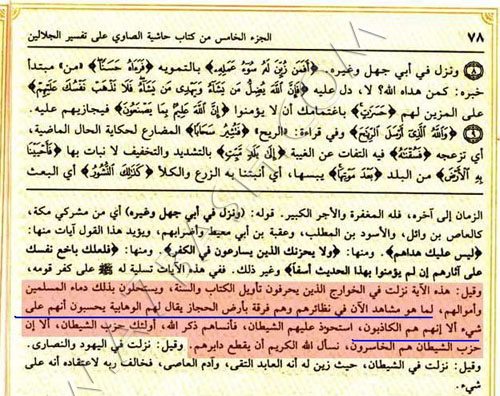 ٧٨ الجزء الخامس من كتاب حاشية الصاوي على تفسير الجلالين
﴿٨﴾ ونزل في أبي جهل وغيره. ﴿أفمن زين له سوء عمله﴾ بالتمويه ﴿فرآه حسناً﴾ «من» مبتدأ
خبره: كمن هداه الله؟ لا، دل عليه ﴿فإن الله يضل من يشاء ويهدي من يشاء فلا تذهب نفسك عليهم﴾
على المزين لهم ﴿حسرات﴾ باغتمامك أن لا يؤمنوا ﴿إن الله عليم بما يصنعون﴾ فيجازيهم عليه.
﴿٩﴾ ﴿والله الذي أرسل الرياح﴾ وفي قراءة: «الريح» ﴿فتثير سحابا﴾ المضارع لحكاية الحال الماضية،
أي تزعجه ﴿فسقناه﴾ فيه التفات عن الغيبة ﴿إلى بلد ميت﴾ بالتشديد والتخفيف لا نبات بها ﴿فأحيينا
به الأرض﴾ من البلد ﴿بعد موتها﴾ يبسها، أي أنبتنا به الزرع والكلأ ﴿كذلك النشور﴾ أي البعث
الزمان إلى آخره، فله المغفرة والأجر الكبير. قوله: (ونزل في أبي جهل وغيره) أي من مشركي مكة،
كالعاص بن وائل، والأسود بن المطلب، وعقبة بن أبي معيط وأضرابهم، ويؤيد هذا القول آيات منها:
﴿ليس عليك هداهم﴾. ومنها: ﴿ولا يحزنك الذين يسارعون في الكفر﴾. ومنها: ﴿فلعلك باخع نفسك
على آثارهم إن لم يؤمنوا بهذا الحديث أسفاً﴾ وغير ذلك. ففي هذه الآيات تسلية له ﷺ على كفر قومه،
وقيل: هذه الآية نزلت في الخوارج الذين يحرفون تأويل الكتاب والسنة، ويستحلون بذلك دماء المسلمين
وأموالهم، لما هو مشاهد الآن في نظائرهم وهم فرقة بأرض الحجاز يقال لهم الوهابية يحسبون أنهم على
شيء ألا إنهم هم الكاذبون، استحوذ عليهم الشيطان، فأنساهم ذكر الله، أولئك حزب الشيطان، ألا إن
حزب الشيطان هم الخاسرون، نسأل الله الكريم أن يقطع دابرهم. وقيل: نزلت في اليهود والنصارى.
وقيل: نزلت في الشيطان، حيث زين له أنه العابد التقى، وآدم العاصي، فخالف ربه لاعتقاده أنه على